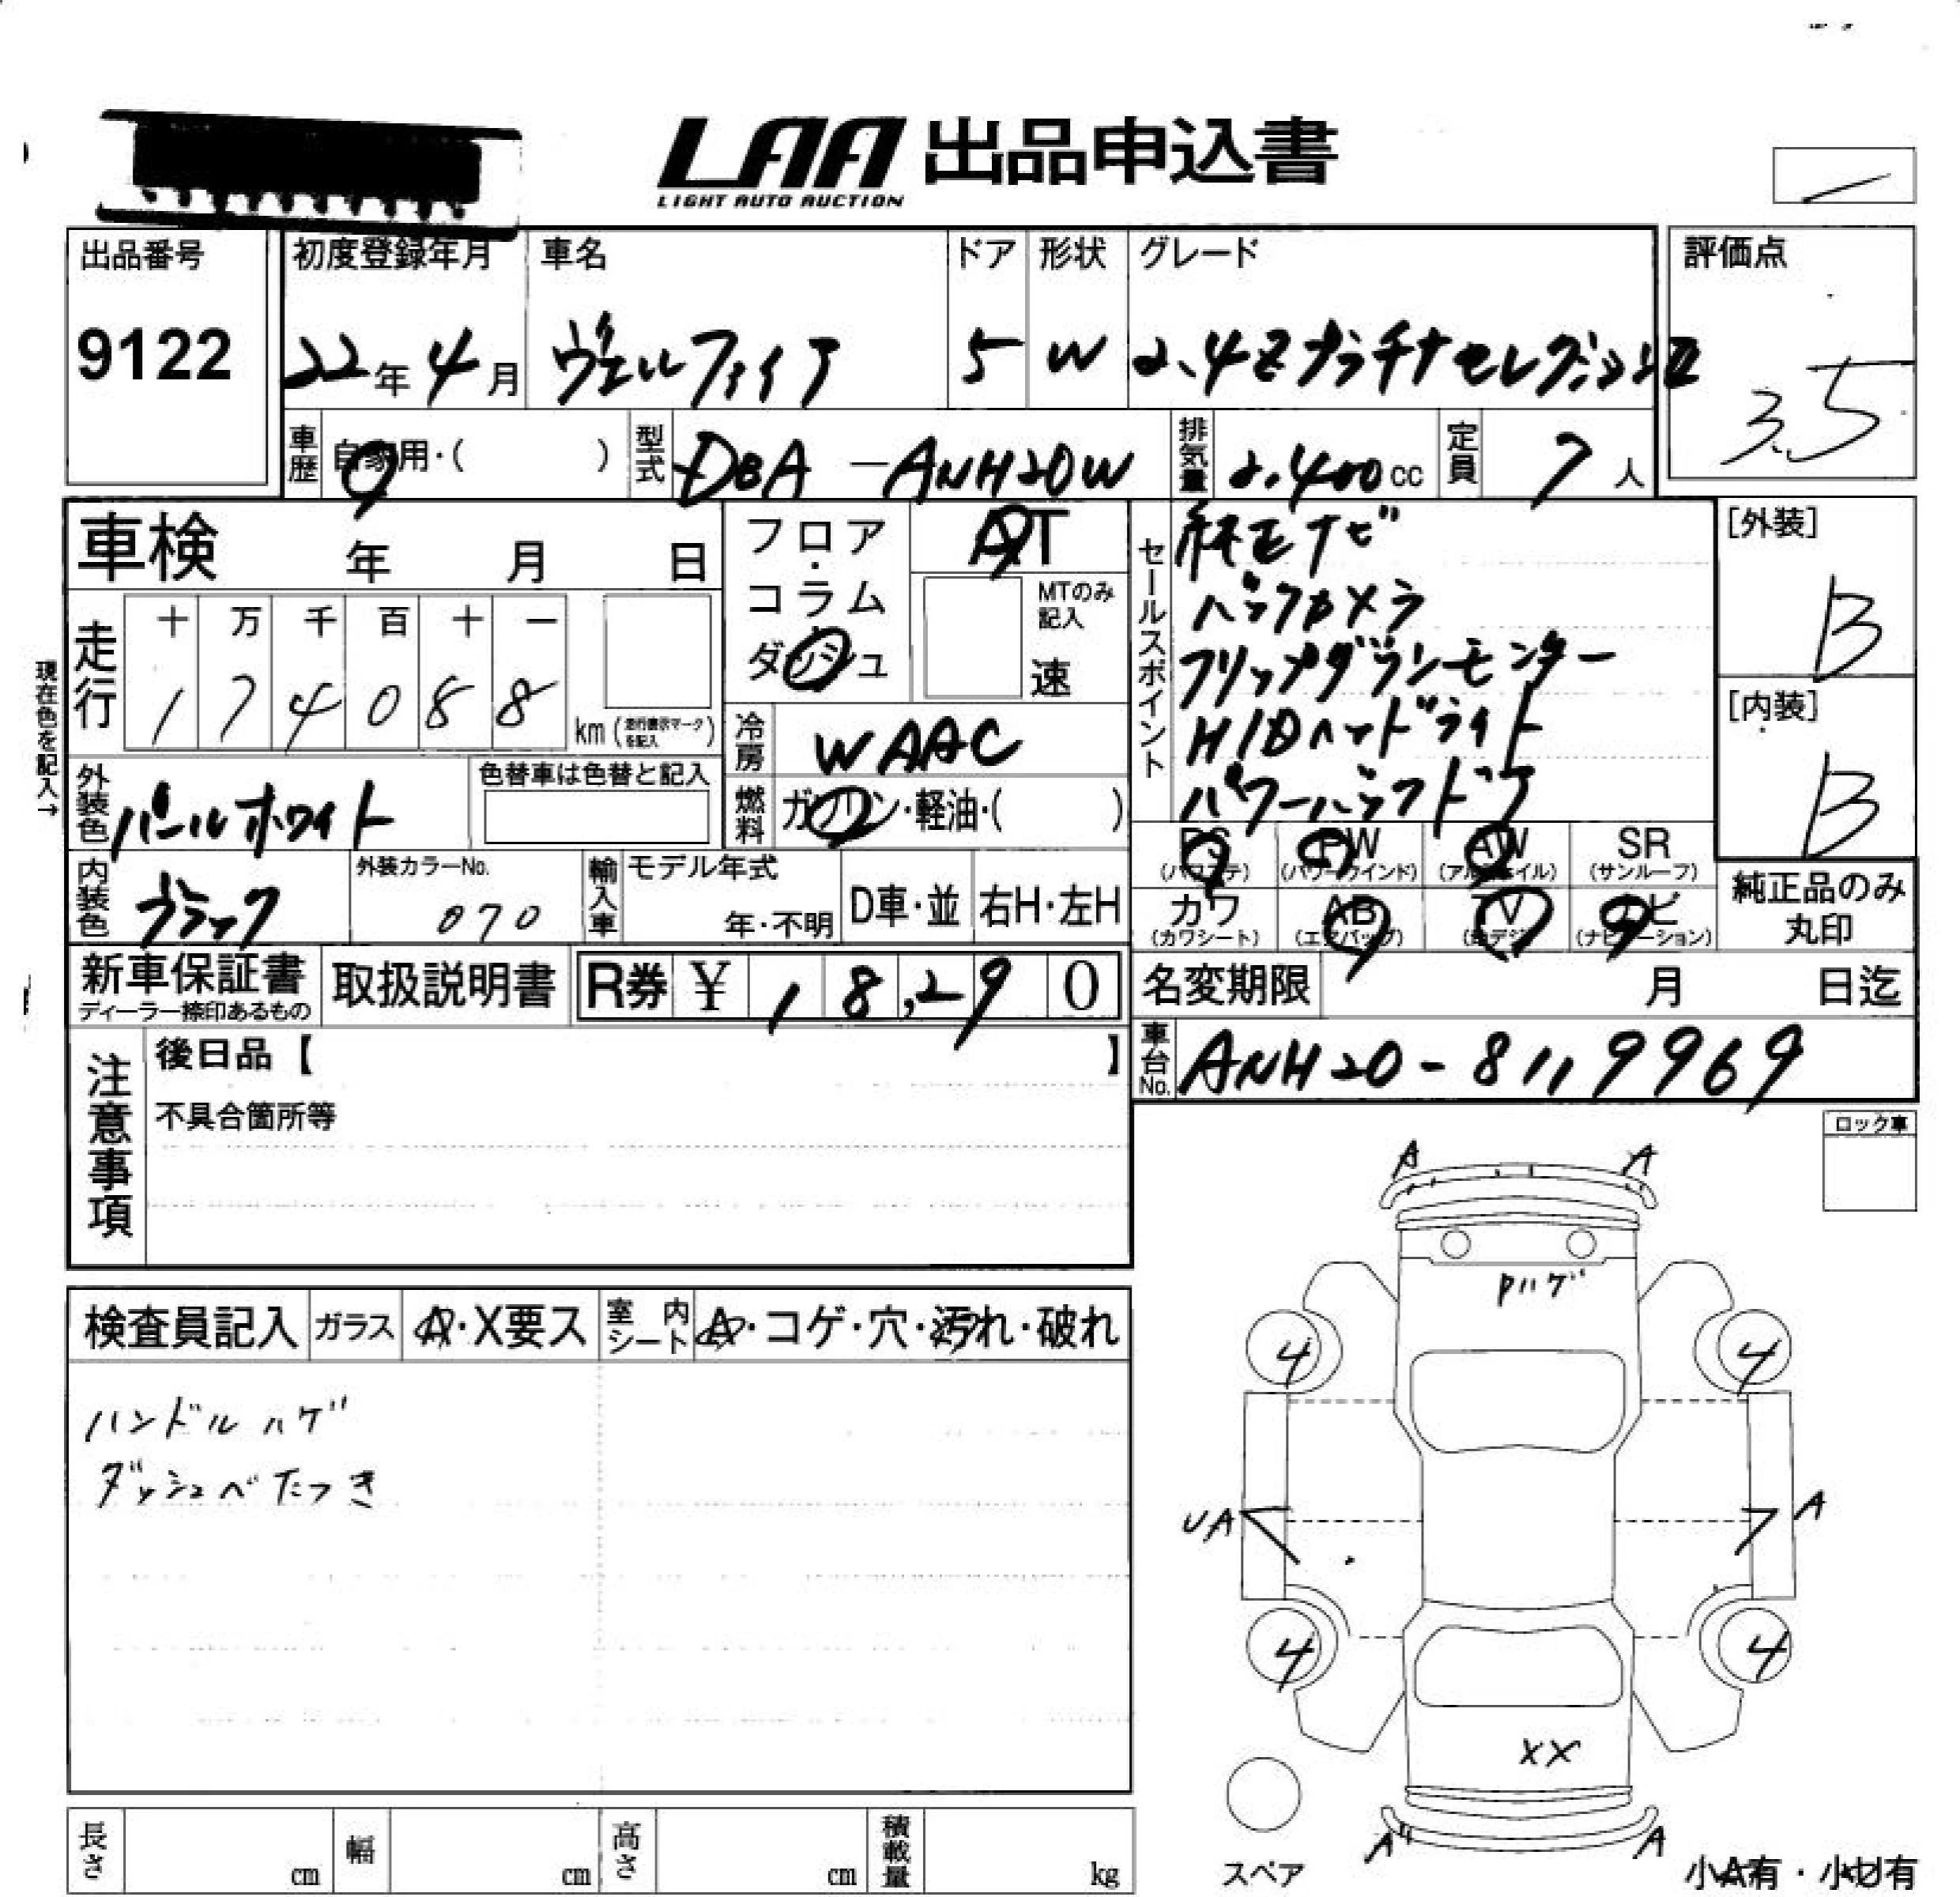 LAA 出品申込書
LIGHT AUTO AUCTION
出品番号 初度登録年月 車名 ドア 形状 グレード 評価点
9122 22年4月 ヴェルファイア 5 W 2.4Z プラチナセレクションⅡ 3.5
車歴 自家用・( ) 型式 DBA-ANH20W 排気量 2.400cc 定員 7人
車検 年 月 日
フロア・コラム・ダッシュ
AT
MTのみ記入
速
セールスポイント
純正ナビ
バックカメラ
フリップダウンモニター
HIDヘッドライト
パワーバックドア
[外装]
B
[内装]
B
現在色を記入→
走行 十 万 千 百 十 一
1 7 4 0 8 8 km (走行表示マークを記入)
冷房 WAAC
外装色 パールホワイト 色替車は色替と記入
燃料 ガソリン・軽油・( )
PS PW AW SR
(パワステ) (パワーウインド) (アルミホイル) (サンルーフ)
カワ AB TV ナビ
(カワシート) (エアバッグ) (地デジ) (ナビゲーション)
純正品のみ
丸印
内装色 ブラック 外装カラーNo. 070 輸入車 モデル年式 年・不明 D車・並 右H・左H
新車保証書 取扱説明書 R券 ¥ 1 8,2 9 0 名変期限 月 日迄
ディーラー捺印あるもの
車台No. ANH20-8119969
注意事項
後日品【 】
不具合箇所等
ロック車
検査員記入 ガラス A・X要ス 室内シート A・コゲ・穴・汚れ・破れ
ハンドルハゲ
ダッシュベたつき
A A
Pハゲ
4 4
UA A
4 4
XX
A A
スペア
小A有・小U有
長さ cm 幅 cm 高さ cm 積載量 kg